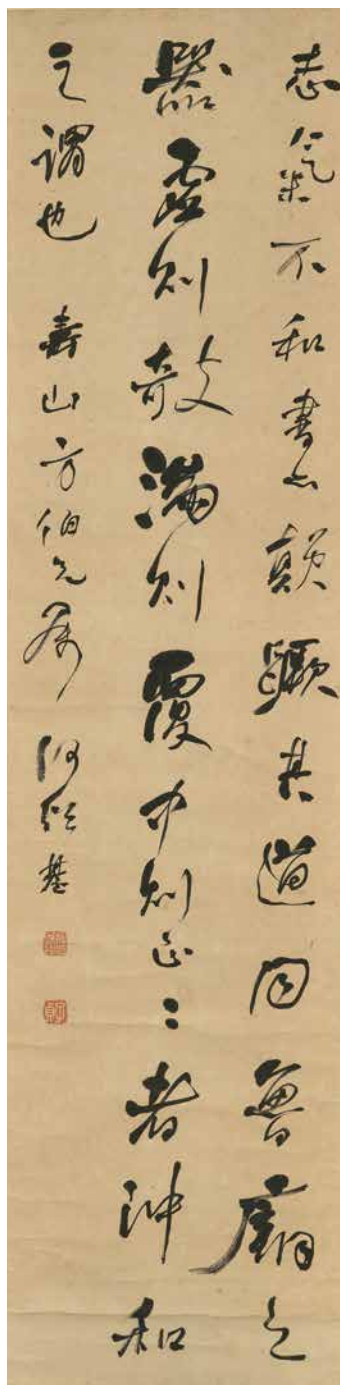 志氣不和書必顛蹶其道同魯廟之
器虛則攲滿則覆中則正〻者沖和
之謂也 壽山方伯屬 何紹基